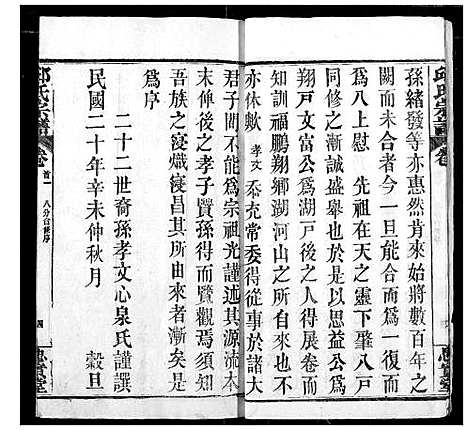 邱氏宗譜
卷
孫緒發等亦惠然肯來始將數百年之
闕而未合者今一旦能合而爲一復而
爲八上慰　先祖在天之靈下肇八戶
合修之漸誠盛舉也於是以思益公爲
翔戶文富公爲湖戶後之人得展卷而
知訓福鵬翔鄉湖河山之所由分也不
亦休歟　孝文　忝充常委得從事於諸大
君子間不能爲宗祖光謹述其源流本
末俾後來之孝子賢孫得而覽觀焉須知
吾族之寖熾寖昌其所由來者漸矣是
爲序
二十二世裔孫孝文心泉氏謹譔
民國二十年辛未仲秋月　　穀旦
邱氏宗譜
卷首一
八分合修序
四
忠實堂